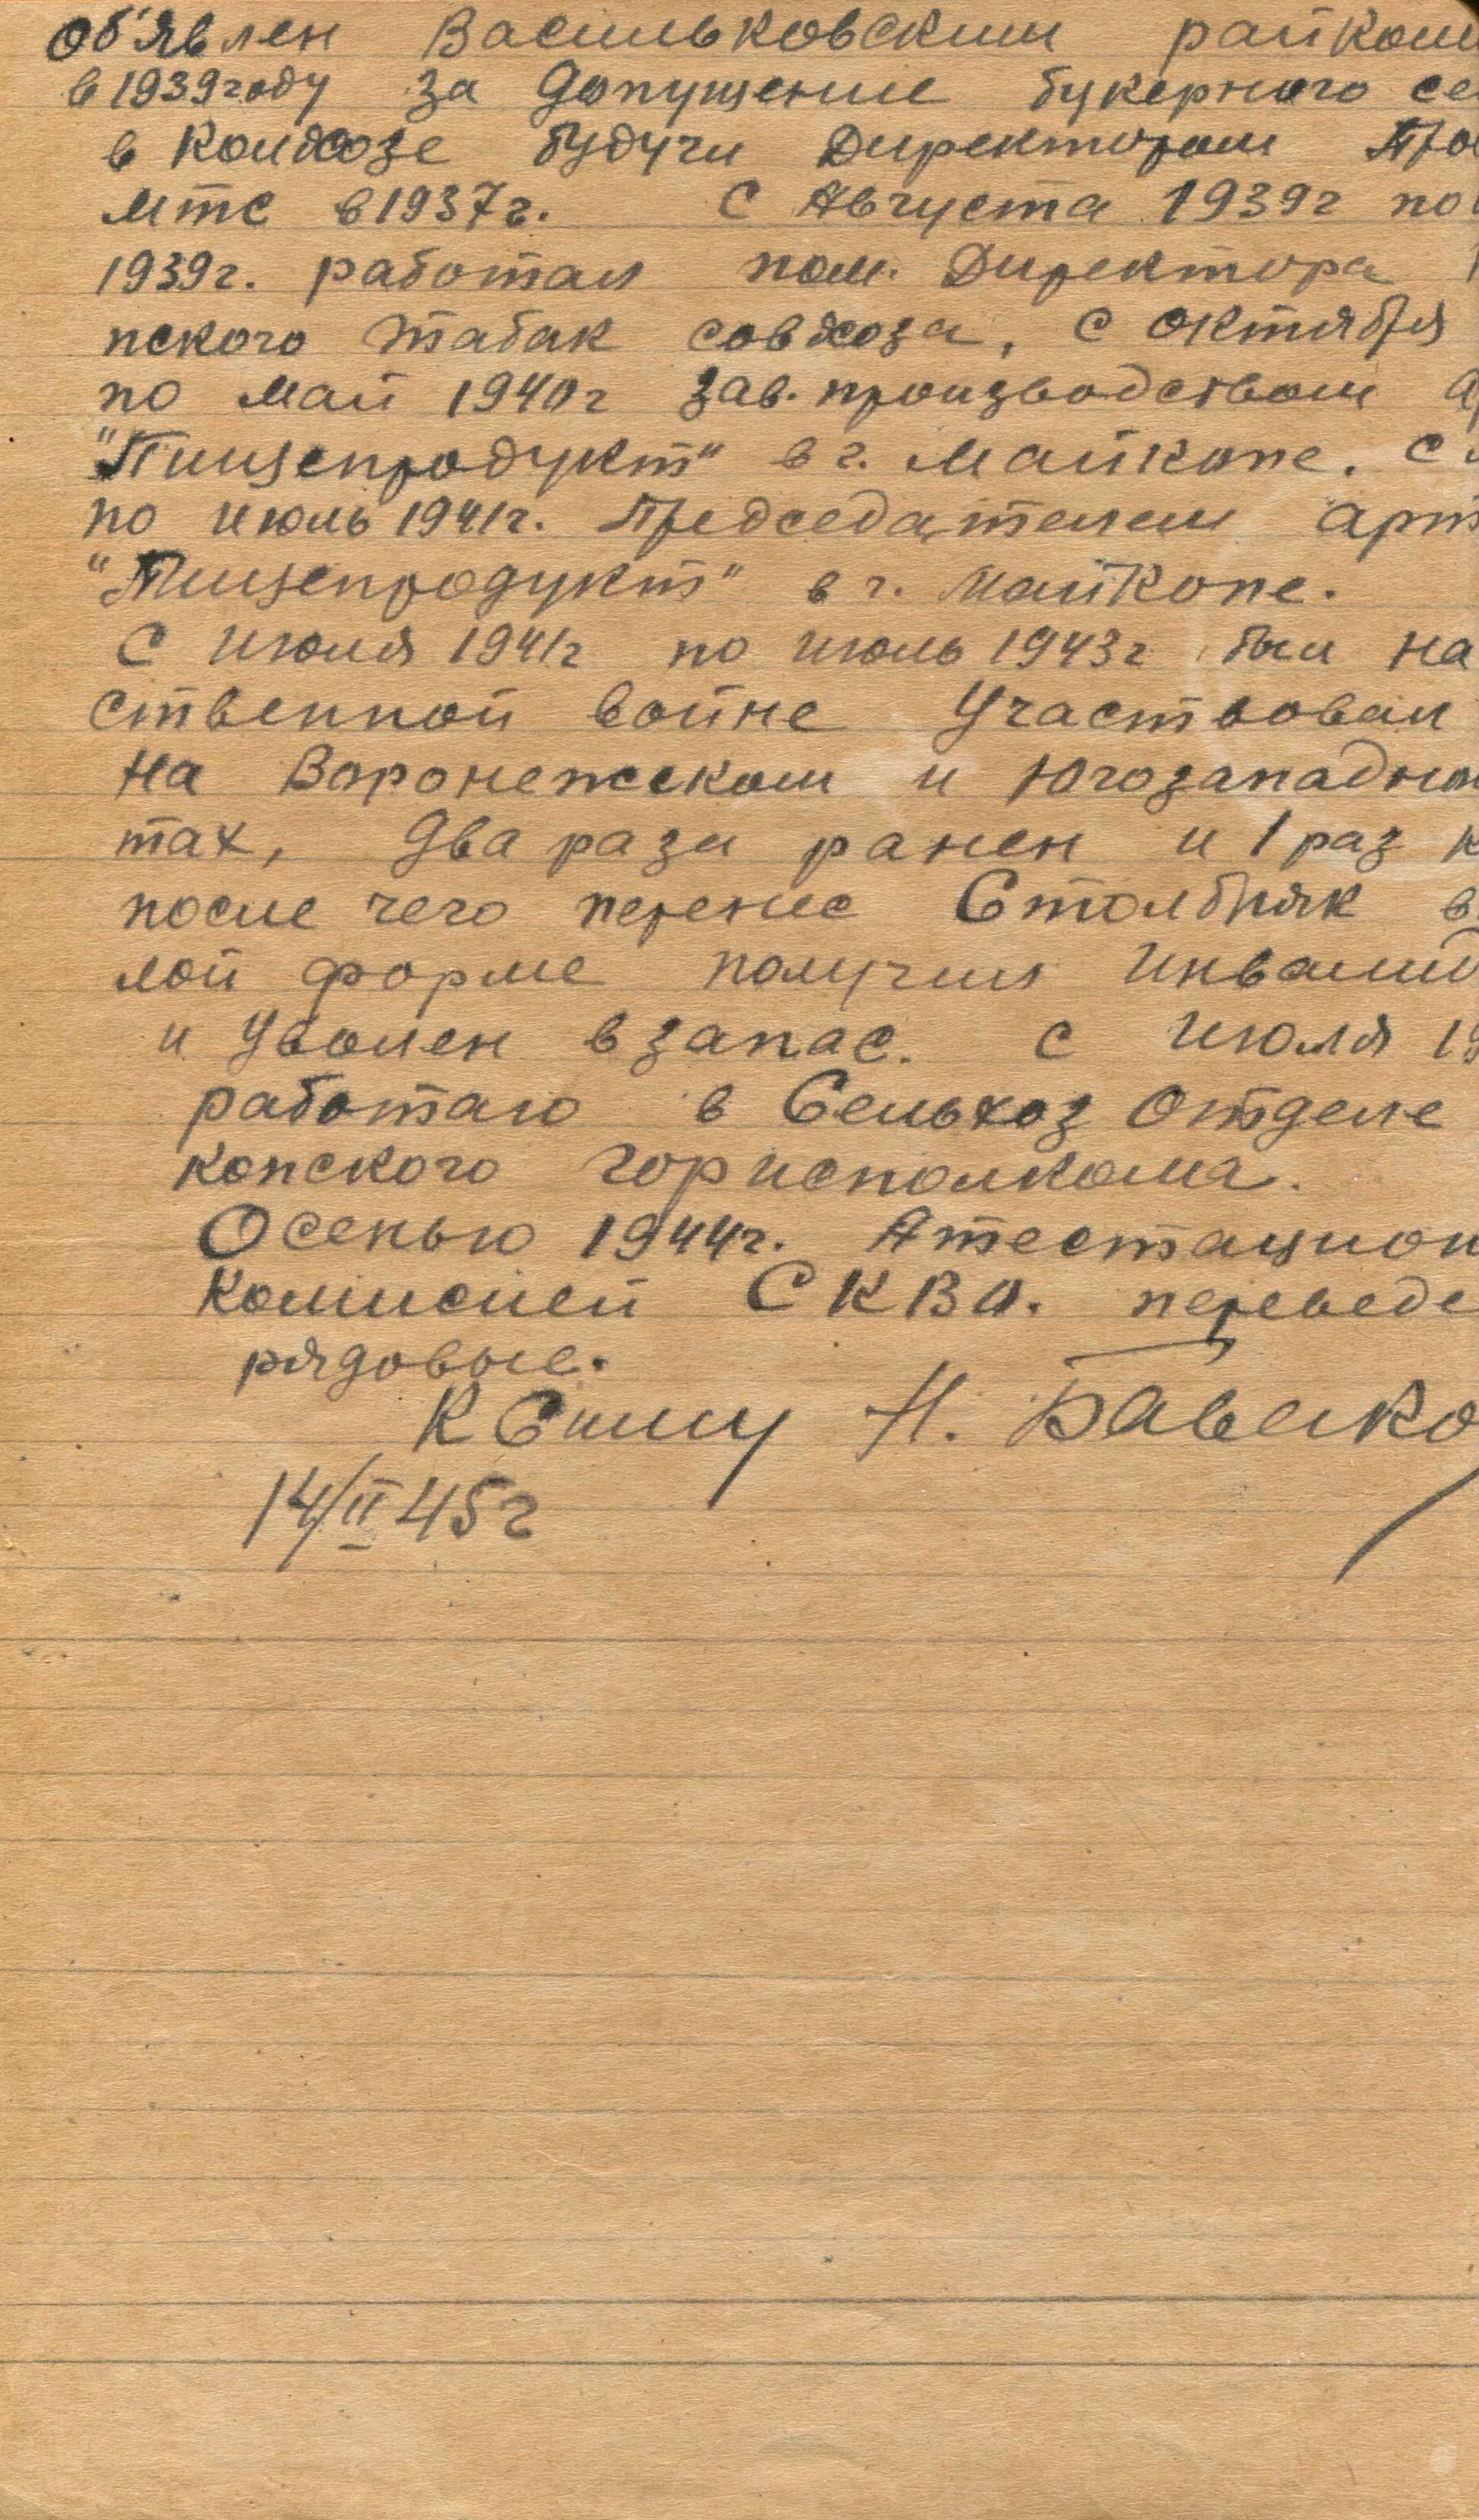 об'явлен Васильковским райком
в 1939 году за допущение букерного се
в колхозе будучи Директором Про
мтс в 1937г. С Августа 1939г по
1939г. работал пом. Директора
пского табак совхоза, с октября
по май 1940г зав. производством а
"Пищепродукт" в г. Майкопе. С
по июль 1941г. Председателем арт
"Пищепродукт" в г. Майкопе.
С июля 1941г по июль 1943г был на
ственной войне Участвовал
на Воронежском и Югозападном
тах, два раза ранен и 1 раз к
после чего перенес Столбняк в
лой форме получил инвалид
и уволен в запас. с июля 19
работаю в Сельхоз Отделе
копского горисполкома.
Осенью 1944г. Атестацион
комисией СКВО. переведе
рядовые.
К Сему Н. Бавыко
14/II 45г